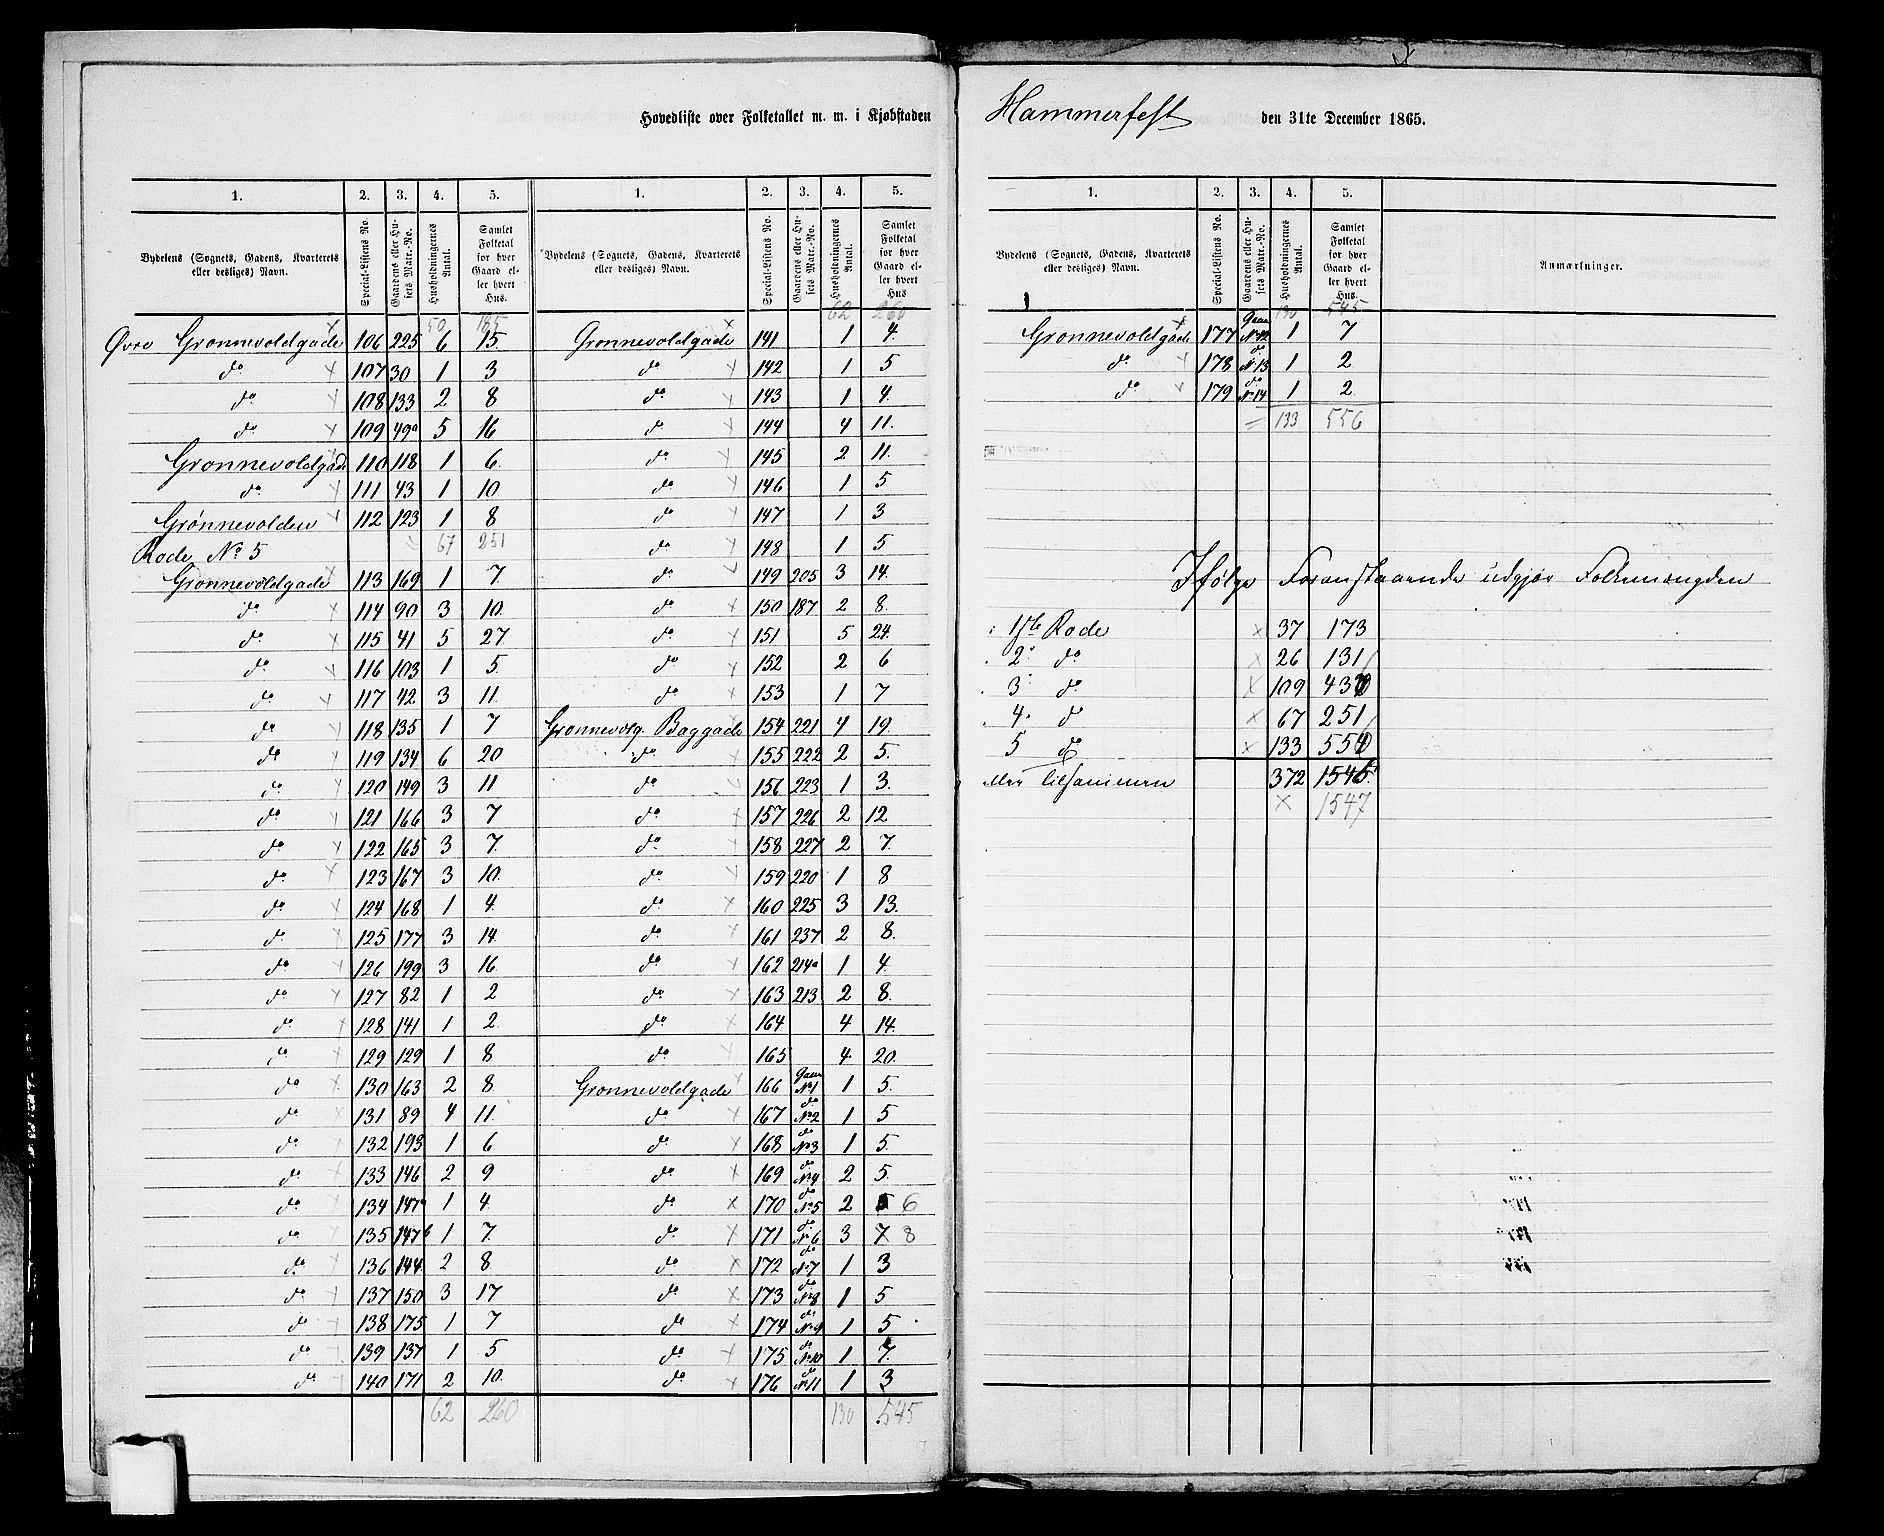 Hovedliste over Folketallet m. m. i Kjøbstaden Hammerfest den 31te December 1865.
1. 2. 3. 4. 5.
Bydelens (Sognets, Gadens, Kvarterets eller desliges) Navn. Special-Listens No. Gaardens eller Husets Matr.-No. Husholdningernes Antal. Samlet Folketal for hver Gaard eller hvert Hus.
50 185
Øvre Grønnevoldgade 106 225 6 15.
do 107 30 1 3
do 108 133 2 8
do 109 49a 5 16
Grønnevoldgade 110 118 1 6.
do 111 43 1 10
Grønnevolden 112 123 1 8
Rode No 5 67 251
Grønnevoldgade 113 169 1 7.
do 114 90 3 10.
do 115 41 5 27
do 116 103 1 5.
do 117 42 3 11
do 118 135 1 7
do 119 134 6 20
do 120 149 3 11
do 121 166 3 7
do 122 165 3 7.
do 123 167 3 10.
do 124 168 1 4.
do 125 177 3 14.
do 126 199 3 16
do 127 82 1 2
do 128 141 1 2.
do 129 129 1 8
do 130 163 2 8
do 131 89 4 11.
do 132 193 1 6
do 133 146 2 9
do 134 147a 1 4.
do 135 147b 1 7.
do 136 144 2 8.
do 137 150 3 17
do 138 175 1 7
do 139 137 1 5
do 140 171 2 10.
62 260
1. 2. 3. 4. 5.
Bydelens (Sognets, Gadens, Kvarterets eller desliges) Navn. Special-Listens No. Gaardens eller Husets Matr.-No. Husholdningernes Antal. Samlet Folketal for hver Gaard eller hvert Hus
62 260
Grønnevoldgade 141 1 4.
do 142 1 5
do 143 1 4.
do 144 4 11.
do 145 2 11.
do 146 1 5
do 147 1 3
do 148 1 5
do 149 205 3 14.
do 150 187 2 8.
do 151 5 24.
do 152 2 6
do 153 1 7
Grønnevorg. Baggade 154 221 4 19.
do 155 222 2 5.
do 156 223 1 3.
do 157 226 2 12
do 158 227 2 7.
do 159 220 1 8
do 160 225 3 13.
do 161 237 2 8.
do 162 214a 1 4.
do 163 213 2 8.
do 164 4 14.
do 165 4 20.
Grønnevoldgade 166 No 1 1 5.
do 167 do No 2 1 5
do 168 do No 3 1 5.
do 169 do No 4 2 5.
do 170 do No 5 2 6
do 171 do No 6 3 7 8
do 172 do No 7 1 3
do 173 do No 8 1 5
do 174 do No 9 1 5
do 175 do No 10 1 7.
do 176 do No 11 1 3
130 545
1. 2. 3. 4. 5.
Bydelens (Sognets, Gadens, Kvarterets eller desliges) Navn. Special-Listens No. Gaardens eller Husets Matr.-No. Husholdningernes Antal. Samlet Folketal for hver Gaard eller hvert Hus. Anmærkninger.
130 545
Grønnevoldgade 177 No 12 1 7
do 178 do No 13 1 2
do 179 do No 14 1 2.
133 556
Ifølge Foranstaaende udgjør Folkemængden
i 1ste Rode 37 173
2. do 26 131
3. do 109 43
4. do 67 251
5 do 133 55
tilsammen 372 154
1547